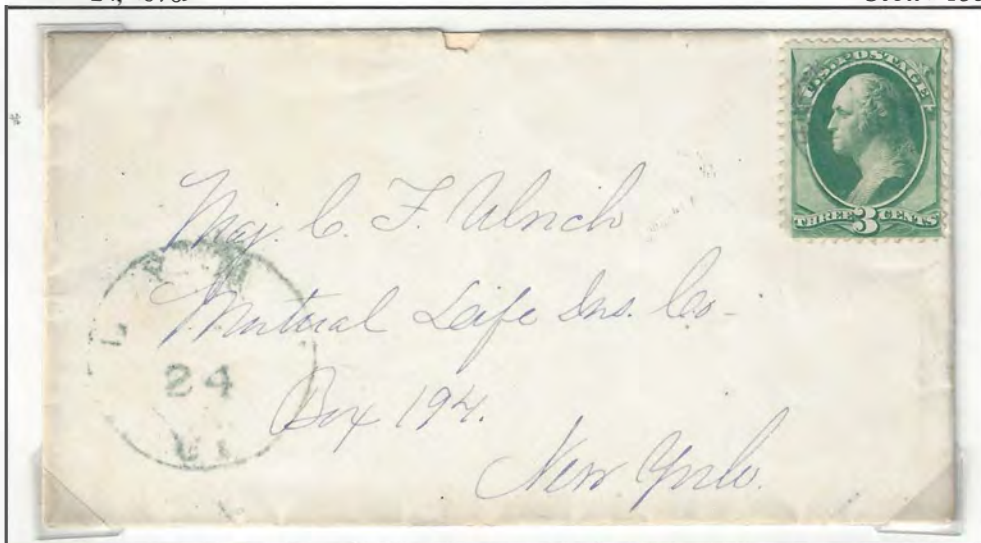 U.S. POSTAGE
THREE 3 CENTS
Maj. C. F. Ulrich
Mutual Life Ins. Co.
Box 194.
New York.
24